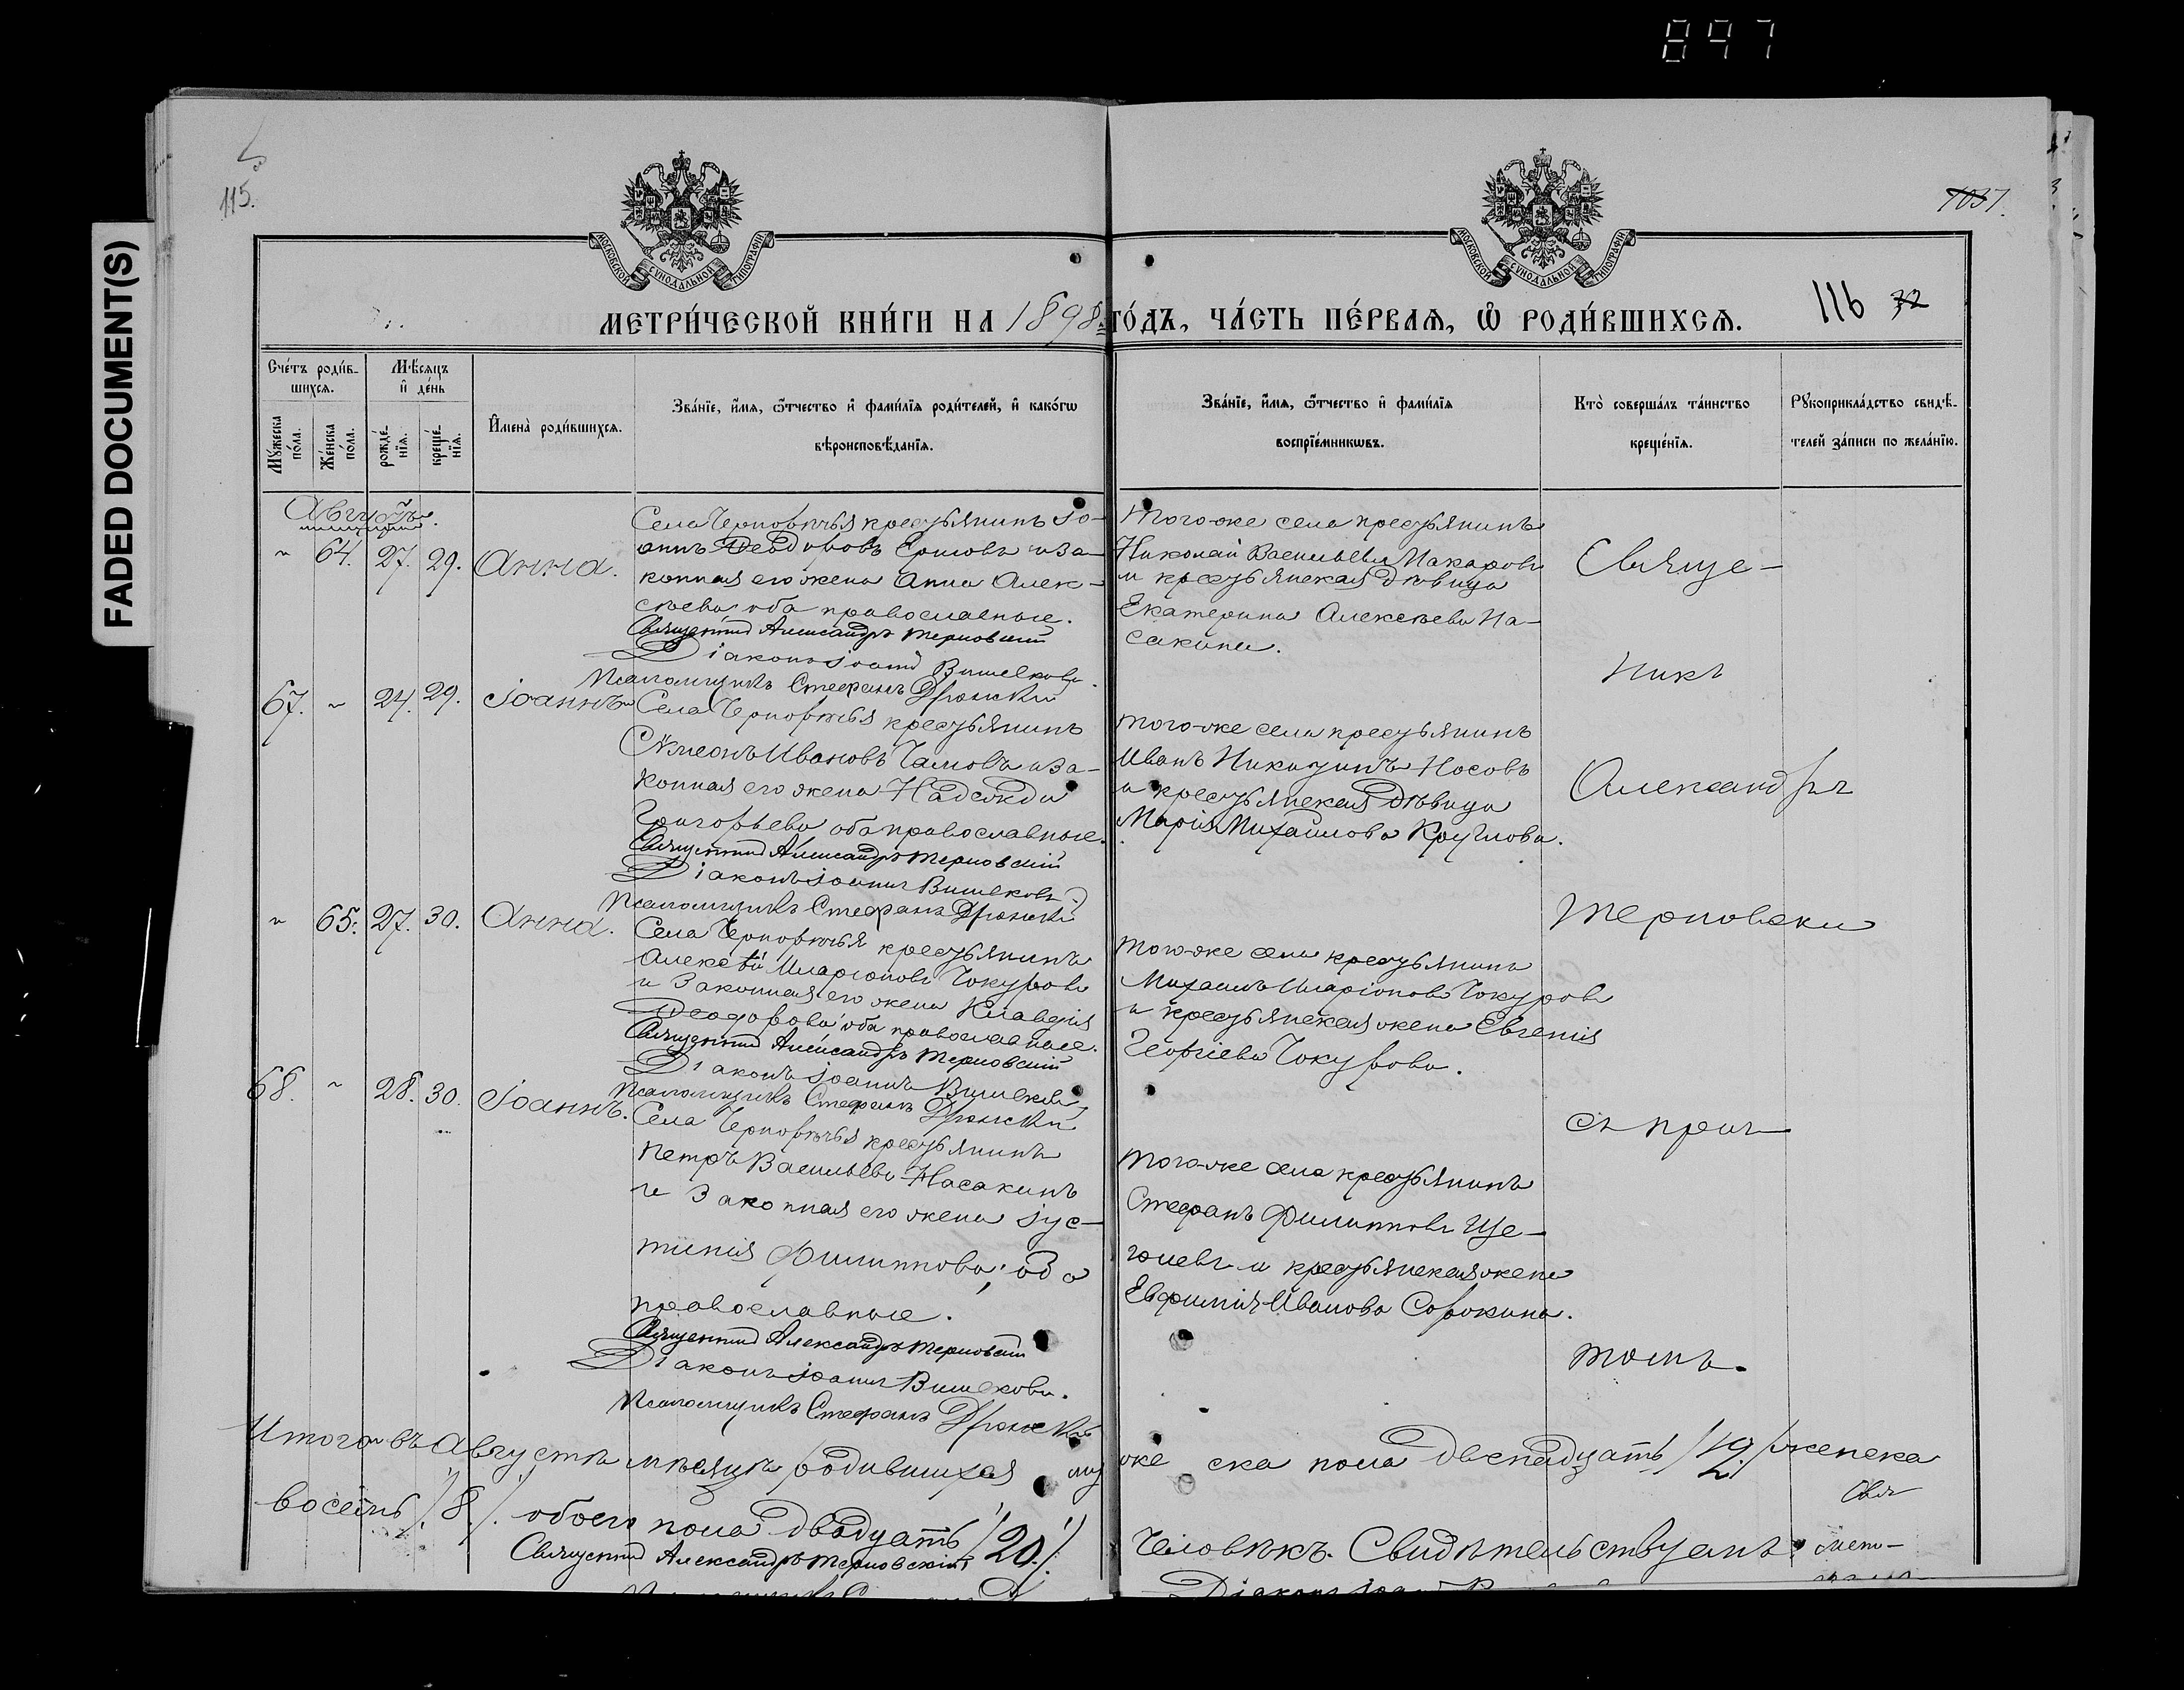 897
FADED DOCUMENT(S)
115.
1037.
116 32
МОСКОВСКОЙ СѴНОДАЛЬНОЙ ТИПОГРАФІИ
МОСКОВСКОЙ СѴНОДАЛЬНОЙ ТИПОГРАФІИ
МЕТРИ́ЧЕСКОЙ КНИ́ГИ НА 1898 ГО́ДЪ, ЧА́СТЬ ПЕ́РВАѦ, Ѽ РОДИ́ВШИХСѦ.
Сче́тъ роди́в-
шихсѧ.
Мꙋ́жеска по́ла.
Же́нска по́ла.
Мѣ́сѧцъ
и҆ де́нь
рожде́-
нїѧ.
креще́-
нїѧ.
И҆мена̀ роди́вшихсѧ.
Зва́нїе, и҆́мѧ, ѻ҆́тчество и҆ фами́лїѧ роди́телей, и҆ како́гѡ
вѣроисповѣ́данїѧ.
Зва́нїе, и҆́мѧ, ѻ҆́тчество и҆ фами́лїѧ
воспрїе́мникѡвъ.
Кто̀ соверша́лъ та́инство
креще́нїѧ.
Рꙋкоприкла́дство свидѣ́-
телей за́писи по жела́нїю.
Августъ.
" 64. 27. 29. Анна.
Села Чернорѣчья крестьянинъ Іо-
аннъ Ѳеодоровъ Ермовъ и за-
конная его жена Анна Алек-
сѣева оба православные.
Священникъ Александръ Терновскій
Діаконъ Іоаннъ Вишековъ.
Псаломщикъ Стефанъ
Того-же села крестьянинъ
Николай Васильевъ Макаровъ
и крестьянская дѣвица
Екатерина Алексѣева На-
сакина.
67. " 24. 29. Іоаннъ
Села Чернорѣчья крестьянинъ
Сѵмеонъ Ивановъ Чамовъ и за-
конная его жена Надежда
Григорьева оба православные.
Священникъ Александръ Терновскій
Діаконъ Іоаннъ Вишековъ.
Псаломщикъ Стефанъ
Того-же села крестьянинъ
Иванъ Никитинъ Носовъ
и крестьянская дѣвица
Марія Михайлова Круглова.
" 65. 27. 30. Анна.
Села Чернорѣчья крестьянинъ
Алексѣй Иларіоновъ Чокуровъ
и законная его жена Клавдія
Ѳеодорова оба православные.
Священникъ Александръ Терновскій
Діаконъ Іоаннъ Вишековъ
Псаломщикъ Стефанъ
Того-же села крестьянинъ
Михаилъ Иларіоновъ Чокуровъ
и крестьянская жена Евгенія
Георгіева Чокурова.
68. " 28. 30. Іоаннъ.
Села Чернорѣчья крестьянинъ
Петръ Васильевъ Насакинъ
и законная его жена Іус-
тинія Филиппова; оба
православные.
Священникъ Александръ Терновскій
Діаконъ Іоаннъ Вишековъ.
Псаломщикъ Стефанъ
Того-же села крестьянинъ
Стефанъ Филипповъ Ще-
голевъ и крестьянская жена
Евфимія Иванова Сорокина.
Священ-
никъ
Александръ
Терновскій
съ прич-
томъ.
Итого въ Августѣ мѣсяцѣ родившихся мужеска пола двенадцать /12/ женска
восемь /8/. обоего пола двадцать /20/. Человѣкъ. Свидѣтельствуемъ:
Священникъ Александръ Терновскій